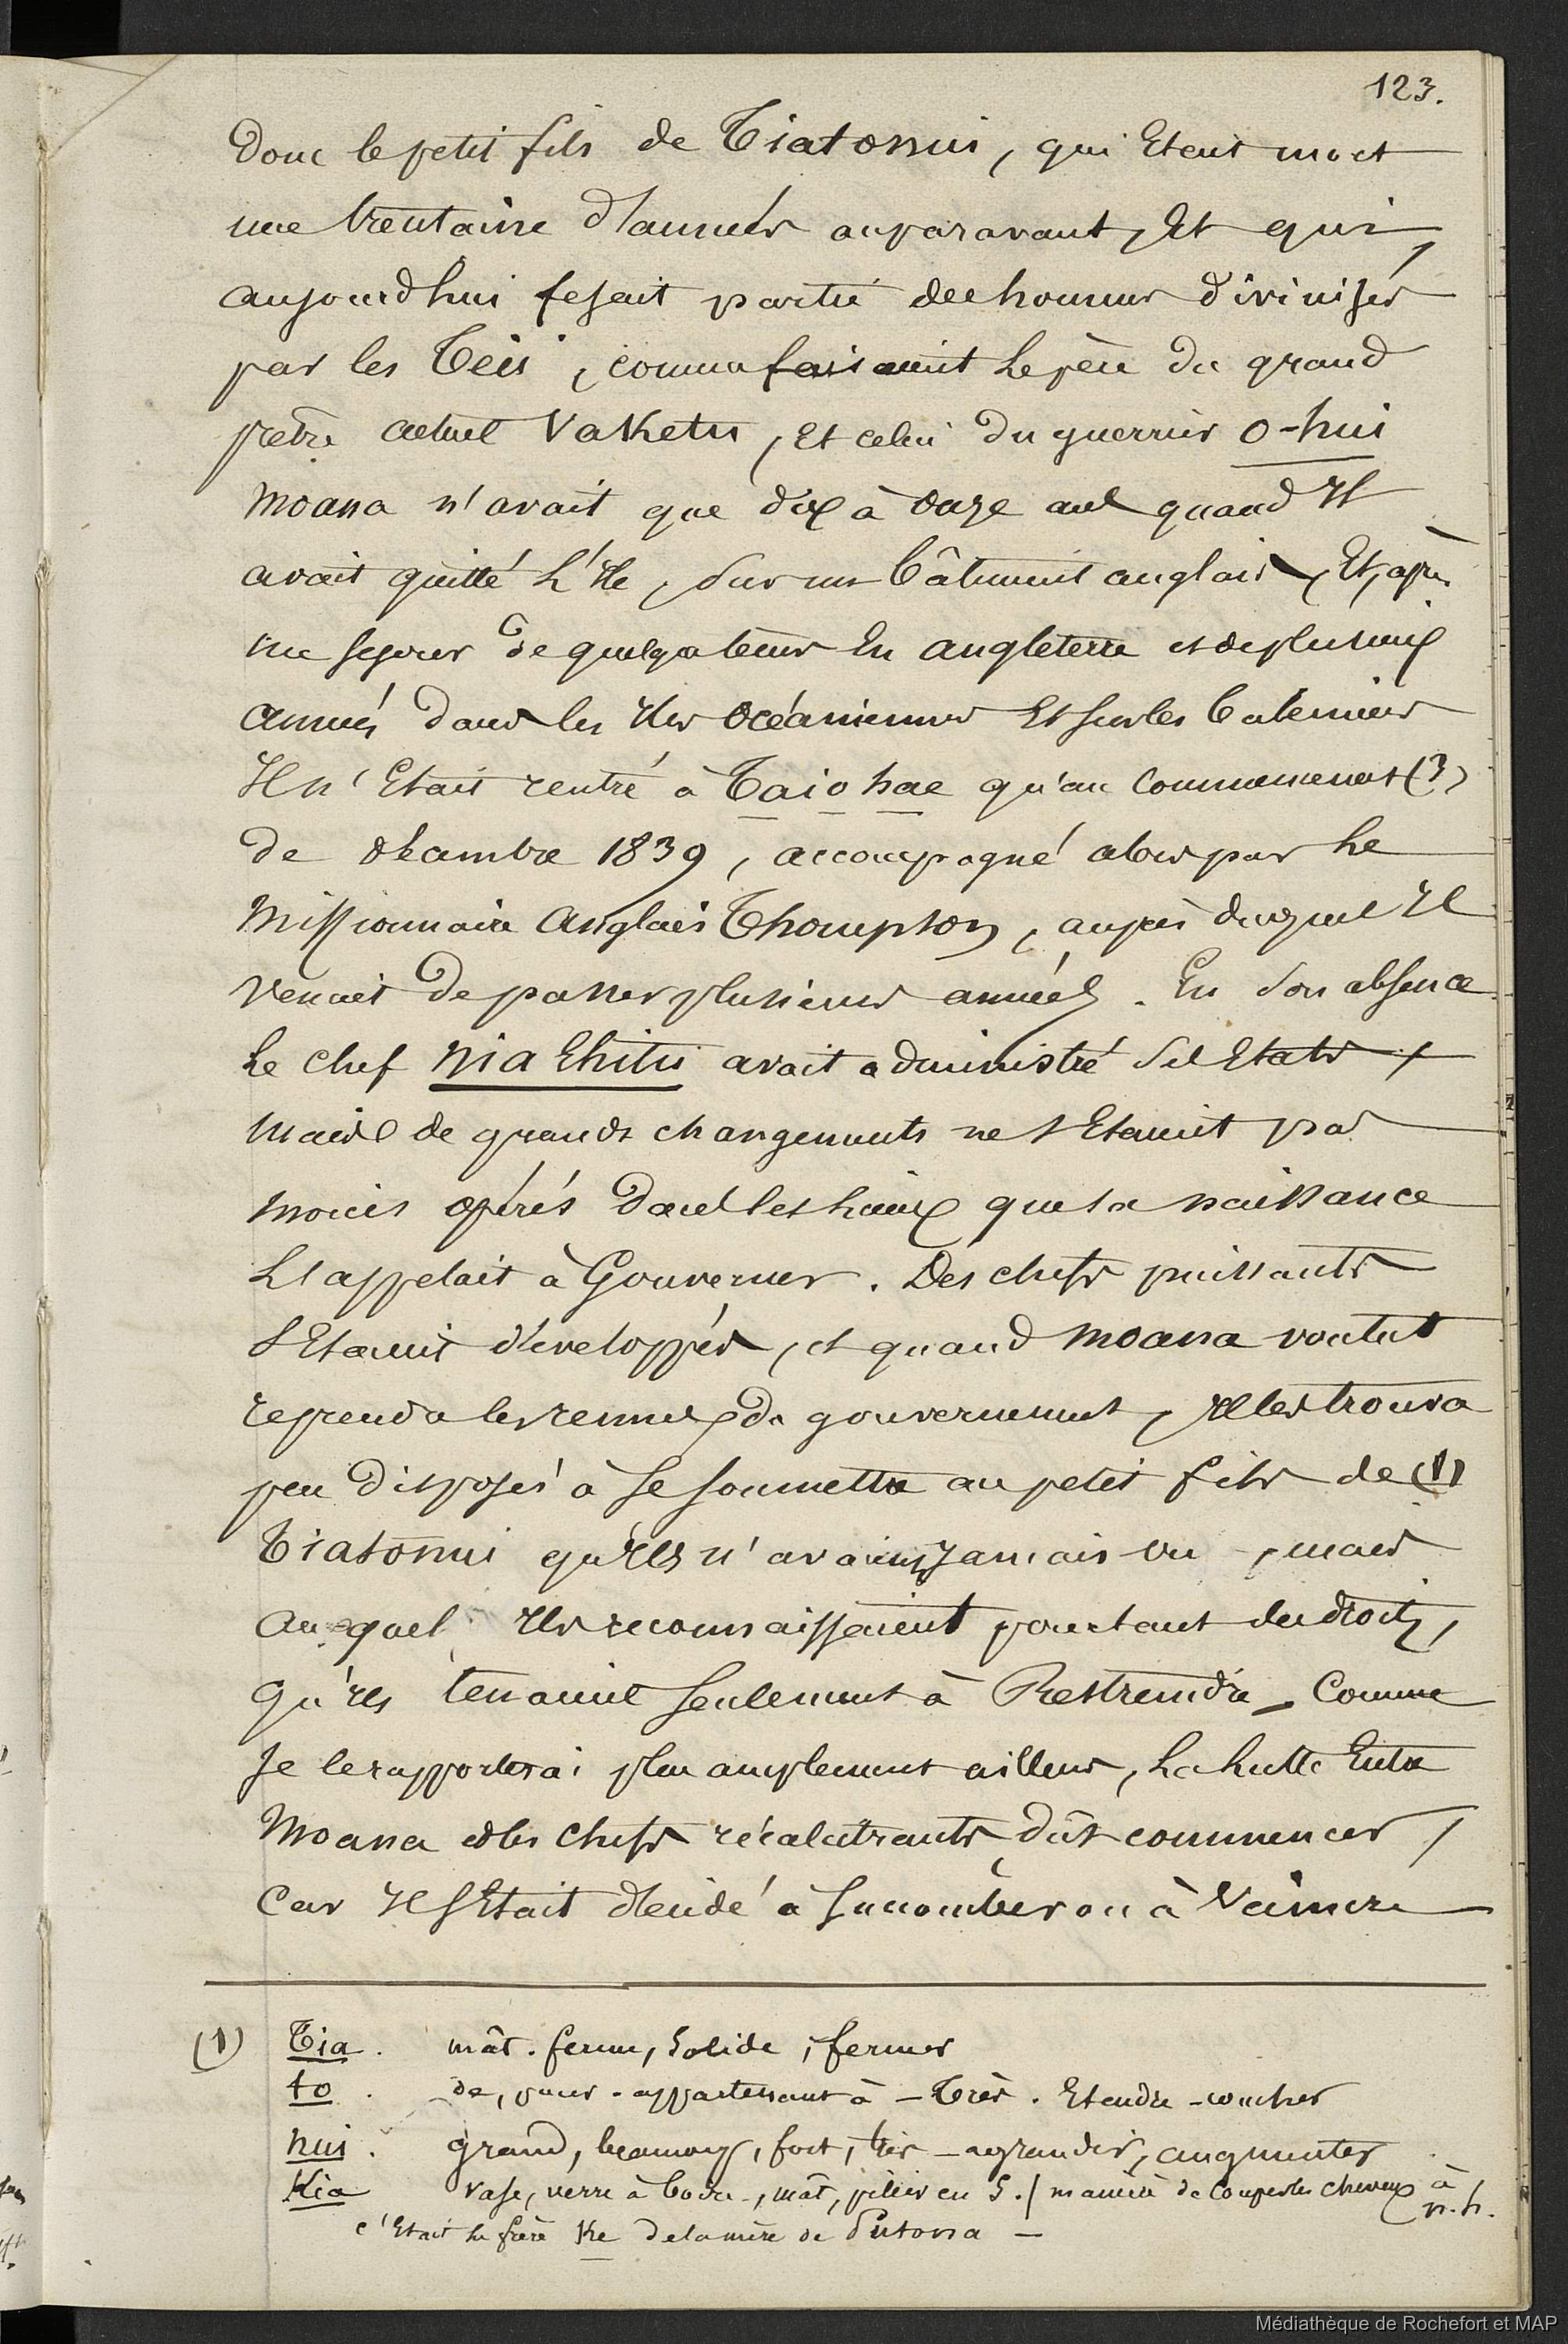 123.
Donc le petit fils de Tiatonui, qui Etait mort
une trentaine d'années auparavant, Et qui,
aujourd'hui fesait partie des hommes divinisés
par les Teïi, comme faisaient Le père du grand
prêtre actuel Vaketu, Et celui du guerrier O-hui
Moana n'avait que dix à onze ans quand Il
avait quitté L'Ile, sur un bâtiment anglais, Et, après
un séjour de quelque tems En angleterre et de plusieurs
années dans les Iles Océaniennes Et sur les baleiniers
Il n'Etait rentré à Taiohae qu'au commencement (?)
de décembre 1839, accompagné alors par Le
Missionnaire Anglais Thompson, auprès duquel Il
Venait de passer plusieurs années. En son absence
Le chef Nia Ehitu avait administré ses Etats,
Mais de grands changements ne s'Etaient pas
moins opérés dans les lieux que sa naissance
L'appelait à Gouverner. Des chefs puissants
s'Etaient développés, et quand Moana voulut
reprendre les rennes du gouvernement, Il les trouva
peu disposés à se soumettre au petit fils de (1)
Tiatonui qu'Ils n'avaient Jamais vu, mais
auquel Ils reconnaissaient pourtant des droits,
qu'Ils tenaient seulement à Restreindre. Comme
Je le rapporterai plus amplement ailleurs, La lutte Entre
Moana et les chefs récalcitrants dût commencer,
Car Il s'Etait décidé à succomber ou à Vaincre
(1) Tia. mât. ferme, solide, fermer
to. de, pour. appartenant à - Très. Etendre - coucher
nui. grand, beaucoup, fort, très - agrandir, augmenter
Kia Vase, verre à boire, mât, pilier en S. / manière de couper les cheveux à n.h.
c'Etait le frère Ke de la mère de Putona -
Médiathèque de Rochefort et MAP